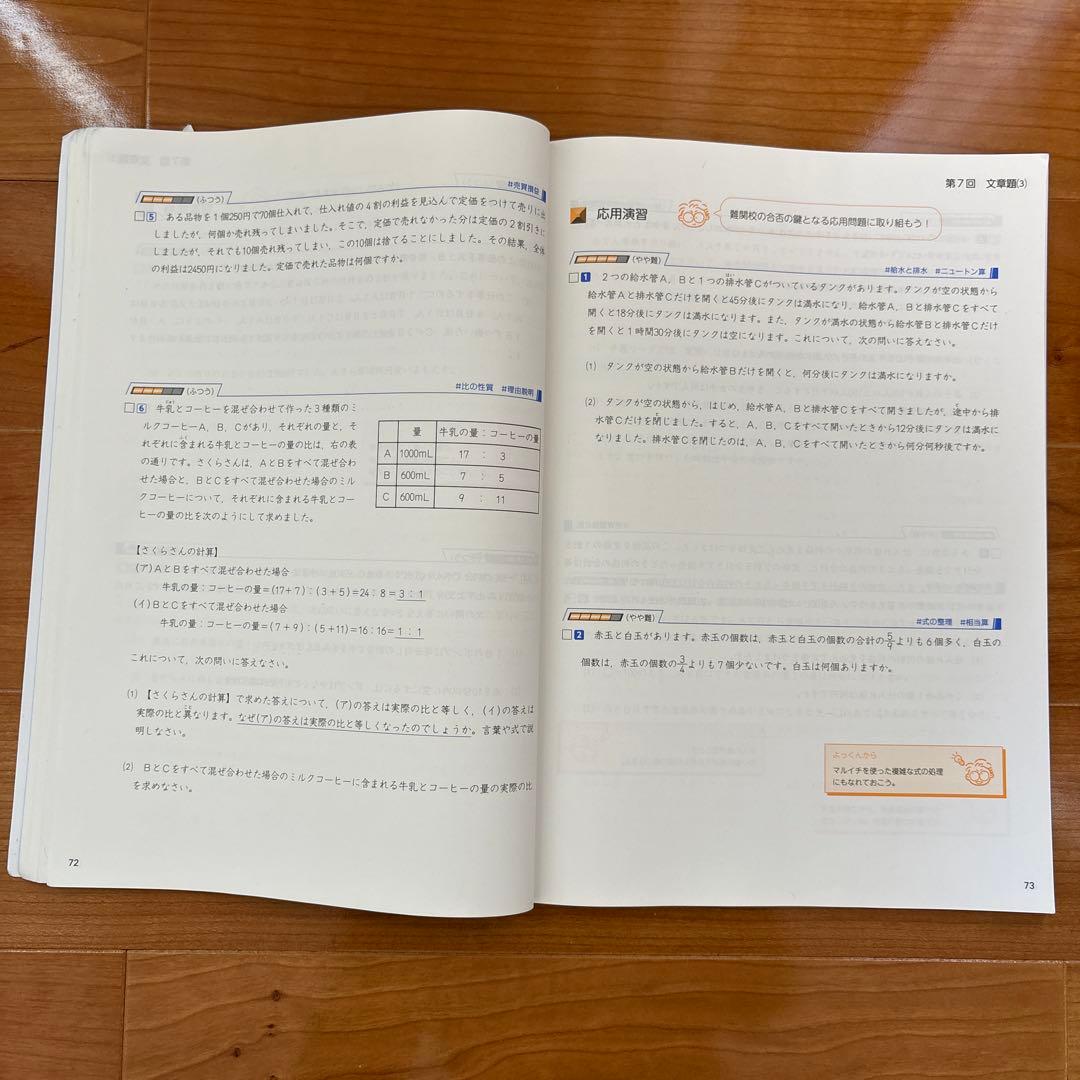 #売買損益
(ふつう)
5 ある品物を1個250円で70個仕入れて、仕入れ値の4割の利益を見込んで定価をつけて売りに出
しましたが、何個か売れ残ってしまいました。そこで、定価で売れなかった分は定価の2割引きに
しましたが、それでも10個売れ残ってしまい、この10個は捨てることにしました。その結果、全体
の利益は2450円になりました。定価で売れた品物は何個ですか。
(ふつう)
#比の性質 #理由説明
6 牛乳とコーヒーを混ぜ合わせて作った3種類のミ
ルクコーヒーA、B、Cがあり、それぞれの量と、そ
れぞれに含まれる牛乳とコーヒーの量の比は、右の表
の通りです。さくらさんは、AとBをすべて混ぜ合わ
せた場合と、BとCをすべて混ぜ合わせた場合のミル
クコーヒーについて、それぞれに含まれる牛乳とコー
ヒーの量の比を次のようにして求めました。
量 牛乳の量:コーヒーの量
A 1000mL 17 : 3
B 600mL 7 : 5
C 600mL 9 : 11
【さくらさんの計算】
(ア)AとBをすべて混ぜ合わせた場合
牛乳の量:コーヒーの量=(17+7):(3+5)=24:8=3:1
(イ)BとCをすべて混ぜ合わせた場合
牛乳の量:コーヒーの量=(7+9):(5+11)=16:16=1:1
これについて、次の問いに答えなさい。
(1) 【さくらさんの計算】で求めた答えについて、(ア)の答えは実際の比と等しく、(イ)の答えは
実際の比と異なります。なぜ(ア)の答えは実際の比と等しくなったのでしょうか。言葉や式で説
明しなさい。
(2) BとCをすべて混ぜ合わせた場合のミルクコーヒーに含まれる牛乳とコーヒーの量の実際の比
を求めなさい。
72
第7回 文章題(3)
応用演習
難関校の合否の鍵となる応用問題に取り組もう!
(やや難)
#給水と排水 #ニュートン算
1 2つの給水管A、Bと1つの排水管Cがついているタンクがあります。タンクが空の状態から
給水管Aと排水管Cだけを開くと45分後にタンクは満水になり、給水管A、Bと排水管Cをすべて
開くと18分後にタンクは満水になります。また、タンクが満水の状態から給水管Bと排水管Cだけ
を開くと1時間30分後にタンクは空になります。これについて、次の問いに答えなさい。
(1) タンクが空の状態から給水管Bだけを開くと、何分後にタンクは満水になりますか。
(2) タンクが空の状態から、はじめ、給水管A、Bと排水管Cをすべて開きましたが、途中から排
水管Cだけを閉じました。すると、A、B、Cをすべて開いたときから12分後にタンクは満水に
なりました。排水管Cを閉じたのは、A、B、Cをすべて開いたときから何分何秒後ですか。
(やや難)
#式の整理 #相当算
2 赤玉と白玉があります。赤玉の個数は、赤玉と白玉の個数の合計の5/9よりも6個多く、白玉の
個数は、赤玉の個数の3/4よりも7個少ないです。白玉は何個ありますか。
よっくんから
マルイチを使った複雑な式の処理
にもなれておこう。
73